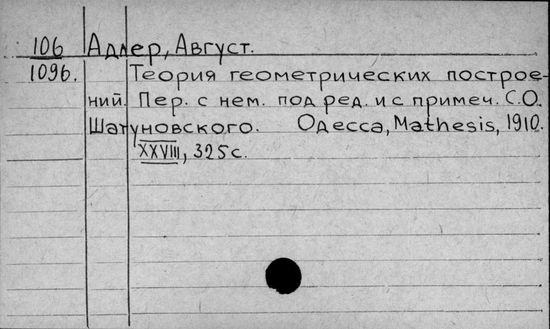 106 Адлер, Август.
1096. Теория геометрических построе-
ний. Пер. с нем. под ред. и с примеч. С.О.
Шатуновского. Одесса, Mathesis, 1910.
XXVIII, 325 с.